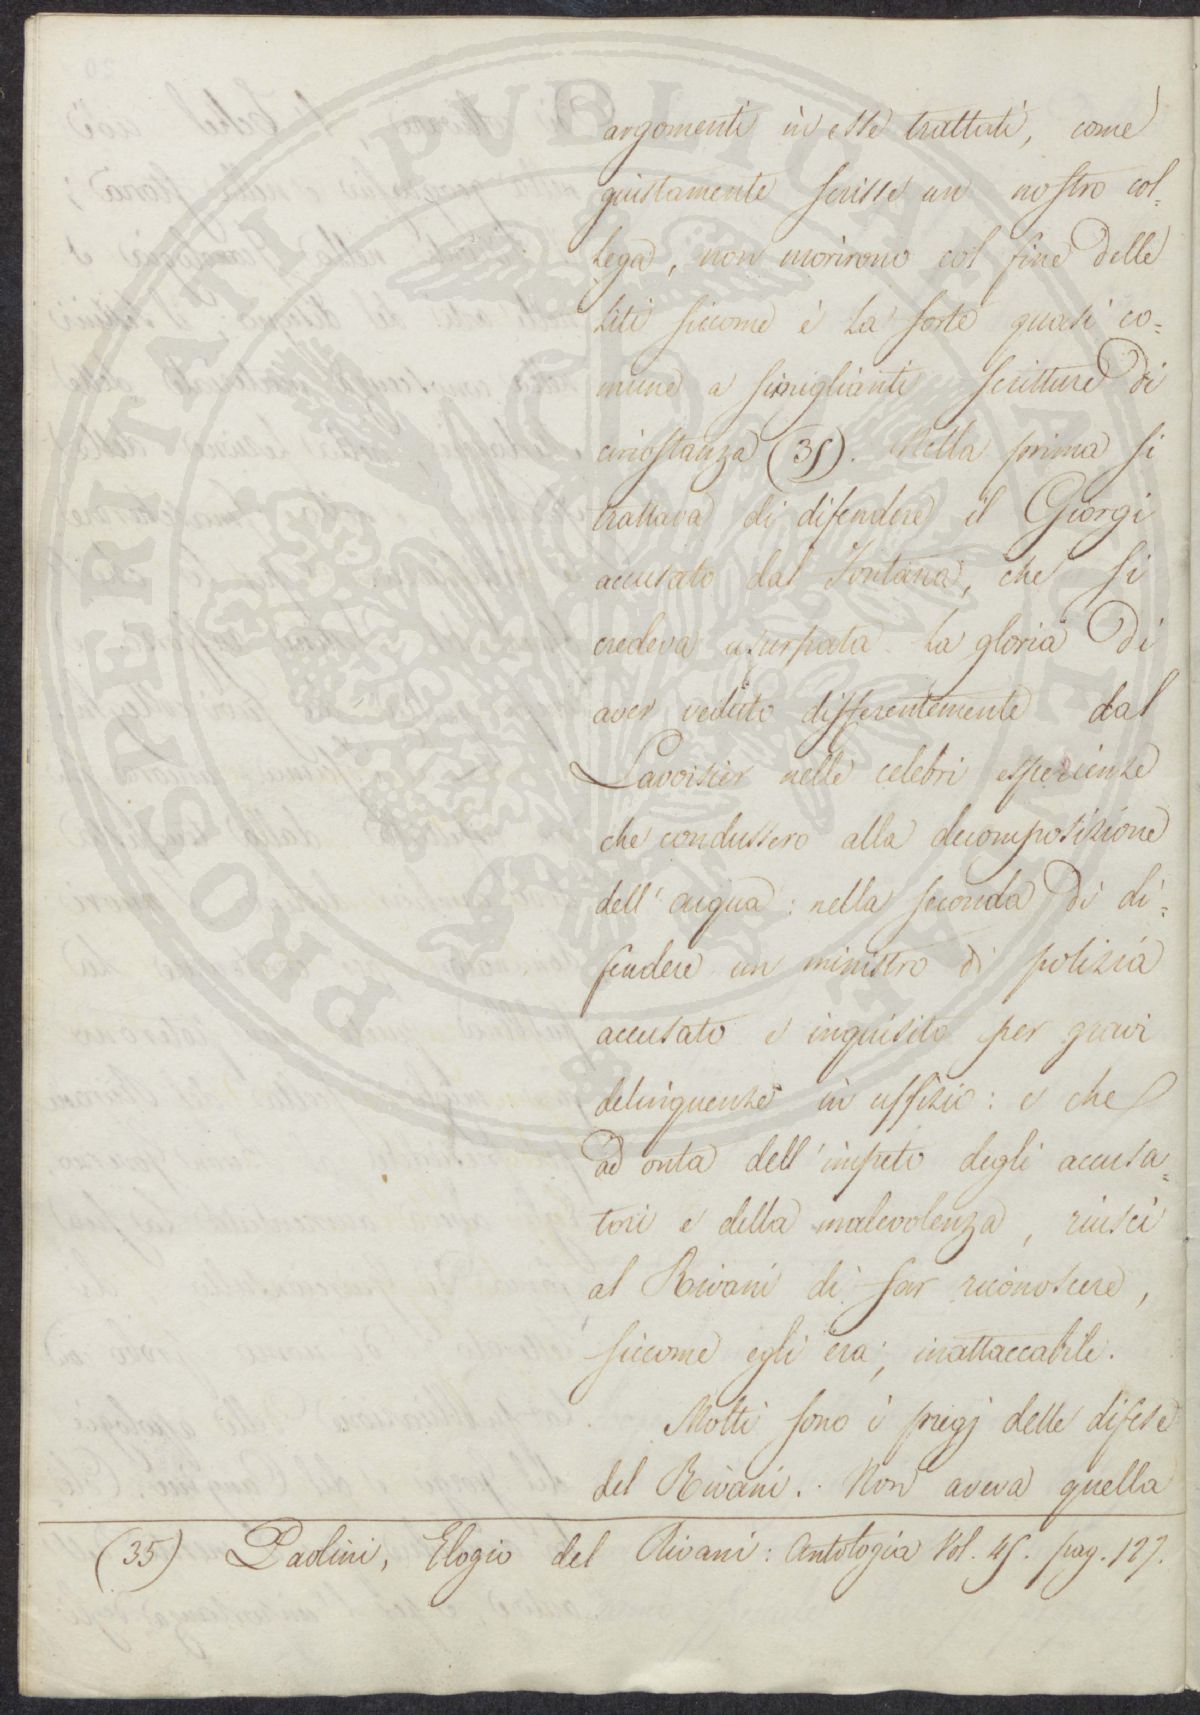 argomenti in esse trattati, come
giustamente scrisse un nostro col=
lega, non morirono col fine delle
liti siccome è la sorte quasi co=
mune a simiglianti scritture di
circostanza (35). Nella prima si
trattava di difendere il Giorgi
accusato dal Fontana, che si
credeva usurpata la gloria di
aver veduto differentemente dal
Lavoisier nelle celebri esperienze
che condussero alla decomposizione
dell'acqua: nella seconda di di=
fendere un ministro di polizia
accusato e inquisito per gravi
delinquenze in uffizio: e che
ad onta dell'impeto degli accusa=
tori e della malevolenza, riuscì
al Rivani di far riconoscere,
siccome egli era, inattaccabile.
Molti sono i pregj delle difese
del Rivani. Non aveva quella
(35) Paolini, Elogio del Rivani: Antologia Vol. 45. pag. 127.
PROSPERITATI PUBLICAE